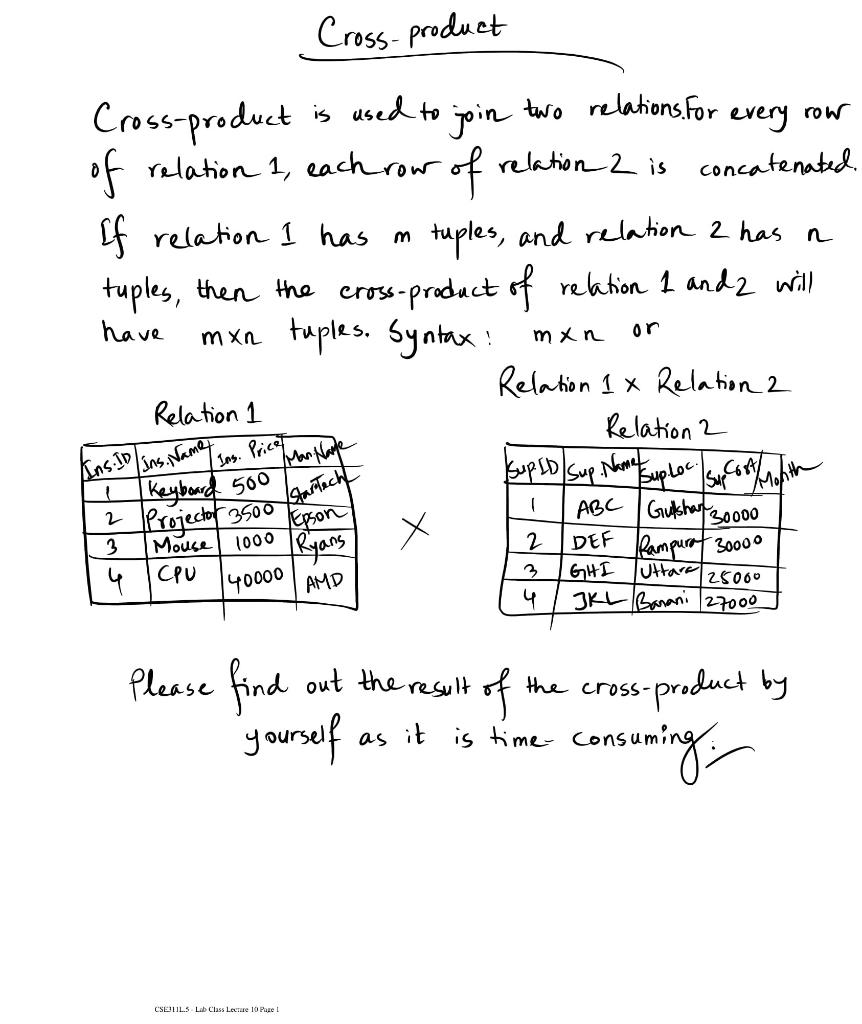 Cross-product
Cross-product is used to join two relations.For every row
of relation 1, each row of relation 2 is concatenated.
If relation 1 has m tuples, and relation 2 has n
tuples, then the cross-product of relation 1 and 2 will
have mxn tuples. Syntax: mxn or
Relation 1 x Relation 2
Relation 1
Ins.ID Ins.Name Ins. Price Man.Name
1 Keyboard 500 StarTech
2 Projector 3500 Epson
3 Mouse 1000 Ryans
4 CPU 40000 AMD
x
Relation 2
Sup ID Sup.Name Sup Loc. Sup Cost/Month
1 ABC Gulshan 30000
2 DEF Rampura 30000
3 GHI Uttara 25000
4 JKL Banani 27000
Please find out the result of the cross-product by
yourself as it is time-consuming.
CSE311L.5 - Lab Class Lecture 10 Page 1